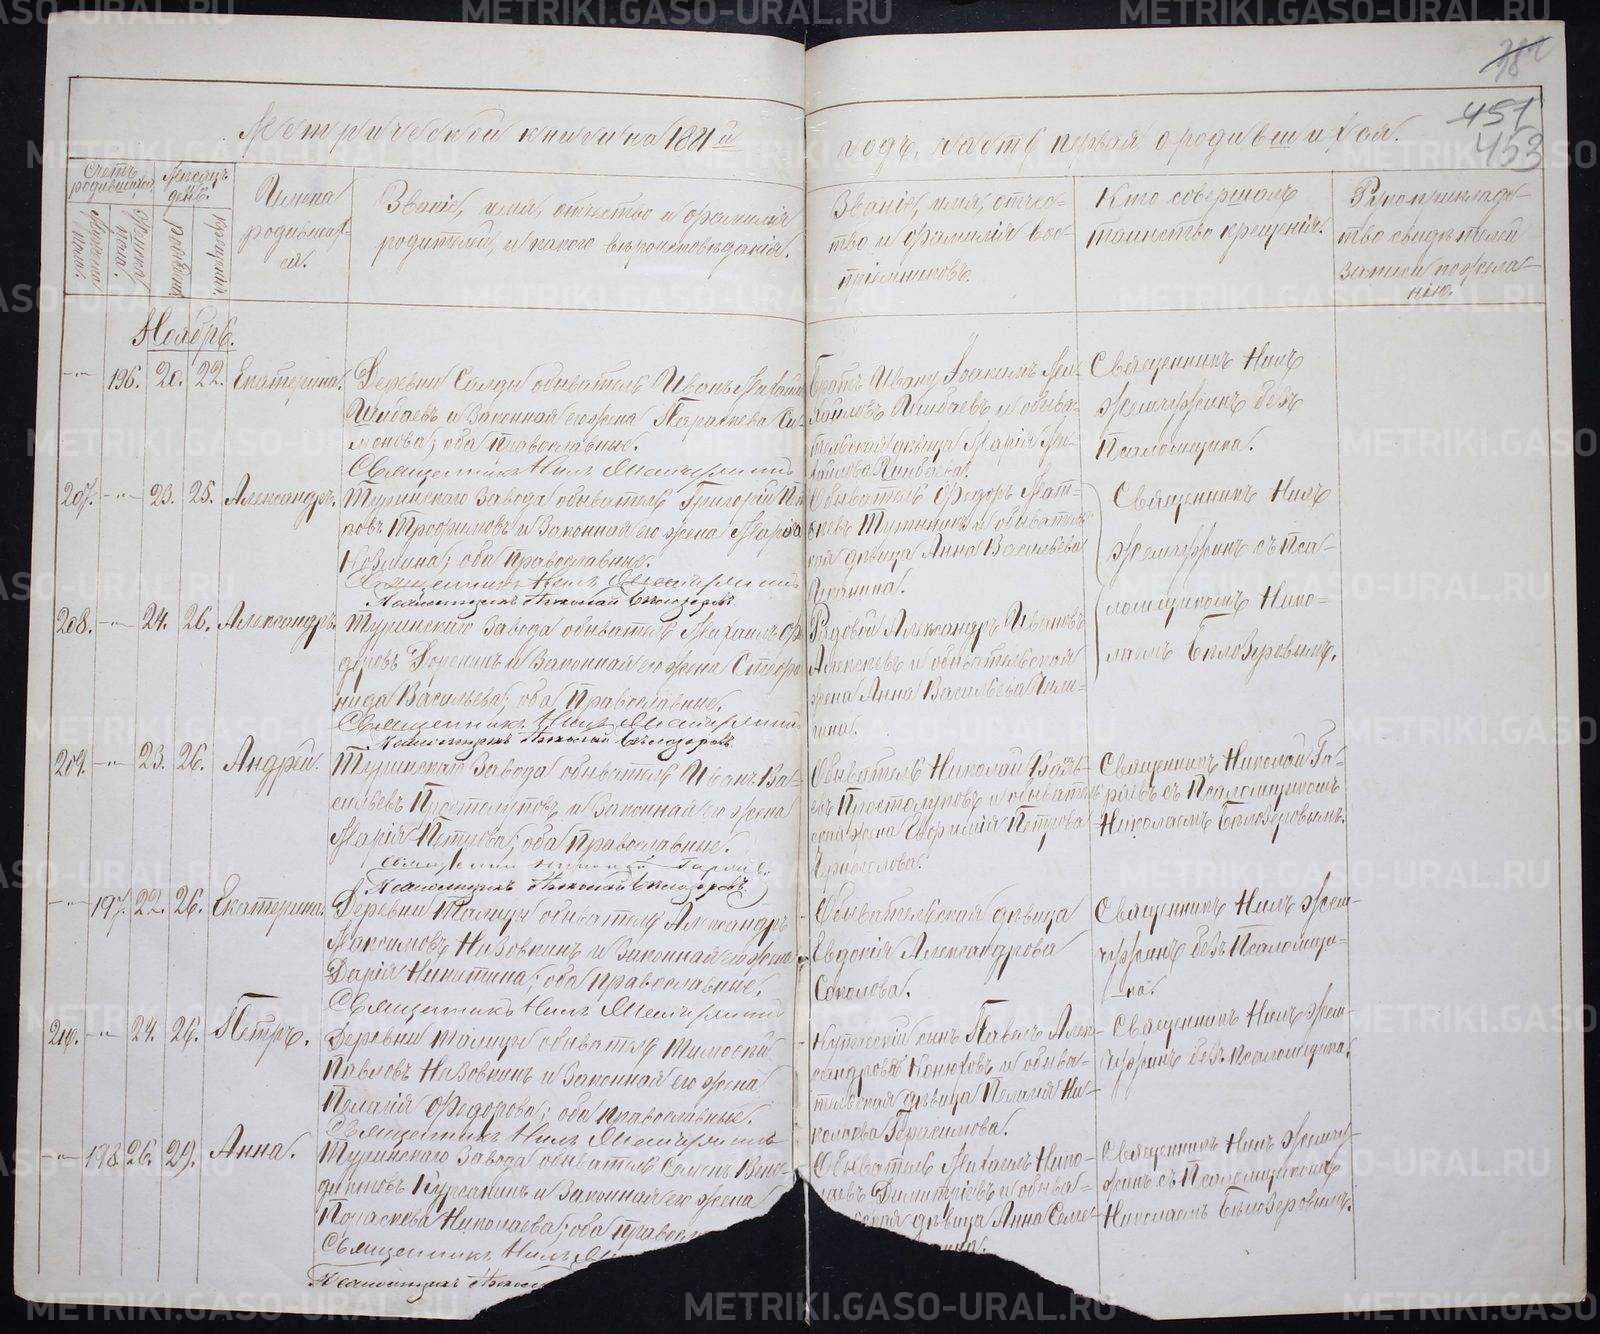 382
451
453
Метрической книги на 1881й
годъ, часть первая о родившихся.
Счетъ родившихся.
Мужеска пола.
Женска пола.
Мѣсяцъ и день.
рожденія
крещенія.
Имена
родивших-
ся.
Званіе, имя, отчество и фамилія
родителей, и какого вѣроисповѣданія.
Званіе, имя, отчес-
тво и фамилія вос-
пріемниковъ.
Кто совершалъ
таинство крещенія.
Рукоприклад-
ство свидѣтелей
записи по жела-
нію.
Ноябрь.
-"- 196. 20. 22. Екатерина.
Деревни Салды обыватель Иванъ Михаил
Шибаевъ и законная его жена Параскева Си-
монова; оба православные.
Священникъ Нилъ
Братъ Ивану Іоакимъ Ми-
хайловъ Шибаевъ и обыва-
тельская дѣвица Марія Ми-
хайлова Шибаева.
Священникъ Нилъ
Жемчужинъ безъ
Псаломщика.
207. -"- 23. 25. Александръ.
Туринскаго завода обыватель Григорій
ровъ Трофимовъ и законная его жена Марѳа
Козмина; оба православные.
Священникъ Нилъ
Псаломщикъ Николай Бѣлозеровъ
Обыватель Ѳедоръ Мат-
ѳеевъ и обыватель
кая дѣвица Анна Васильева
Священникъ Нилъ
Жемчужинъ съ Пса-
ломщикомъ Нико-
лаемъ Бѣлозеровымъ.
208. -"- 24. 26. Александръ.
Туринскаго завода обыватель Михаилъ Ѳе
доровъ и законная его жена Стефа
нида Васильева; оба православные.
Священникъ Нилъ
Псаломщикъ Николай Бѣлозеровъ
Рядовой Александръ Ивановъ
Алексѣевъ и обывательская
жена Анна Васильева
209. -"- 23. 26. Андрей.
Туринскаго завода обыватель Иванъ Ва-
сильевъ Простолуповъ и законная его жена
Марія Петрова; оба православные.
Священникъ Николай
Псаломщикъ Николай Бѣлозеровъ
Обыватель Николай Василь-
евъ Простолуповъ и обыватель
ская жена Евфимія Петрова
Священникъ Николай Га-
съ Псаломщикомъ
Николаемъ Бѣлозеровымъ.
-"- 197. 22. 26. Екатерина.
Деревни Талицы обыватель Александръ
Максимовъ Низовкинъ и законная его жена
Дарія Никитина; оба православные.
Священникъ Нилъ
Обывательская дѣвица
Евдокія Александрова
Соколова.
Священникъ Нилъ Жем-
чужинъ безъ Псаломщи-
ка.
210. -"- 24. 26. Петръ.
Деревни Талицы обыватель Тимоѳей
Павловъ Низовкинъ и законная его жена
Пелагія Ѳедорова; оба православные.
Священникъ Нилъ
Купеческій сынъ Павелъ Алек-
сандровъ Конюховъ и обыва-
тельская дѣвица Пелагія Ни-
колаева Герасимова.
Священникъ Нилъ Жем-
чужинъ безъ псаломщика.
-"- 198. 26. 29. Анна.
Туринскаго завода обыватель Семенъ Вене-
диктовъ Курганинъ и законная его жена
Параскева Николаева; оба правосл
Священникъ Нилъ
Псаломщикъ Никол
Обыватель Михаилъ Нико-
лаевъ Димитріевъ и обыва-
ская дѣвица Анна Семе-
Священникъ Нилъ Жемчу-
жинъ съ Псаломщикомъ
Николаемъ Бѣлозеровымъ.
METRIKI.GASO-URAL.RU